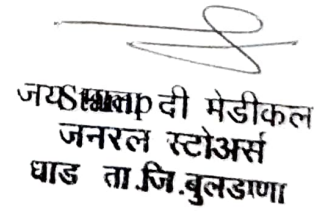 जय दी मेडीकल
जनरल स्टोअर्स
धाड ता.जि.बुलडाणा